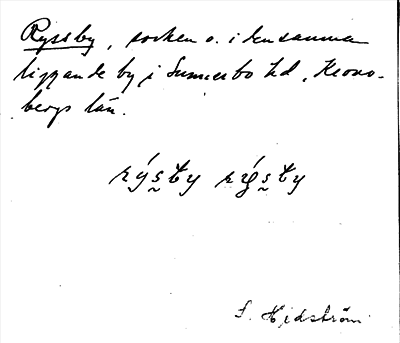 Ryssby, socken o. i densamma
liggande by i Sunnerbo hd, Krono-
bergs län.
rýsby
S. Hedström